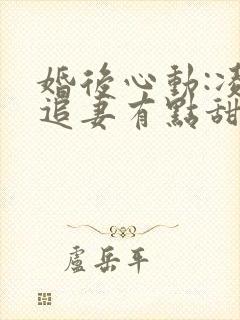 婚後心動:凌
追妻有點甜
盧岳平